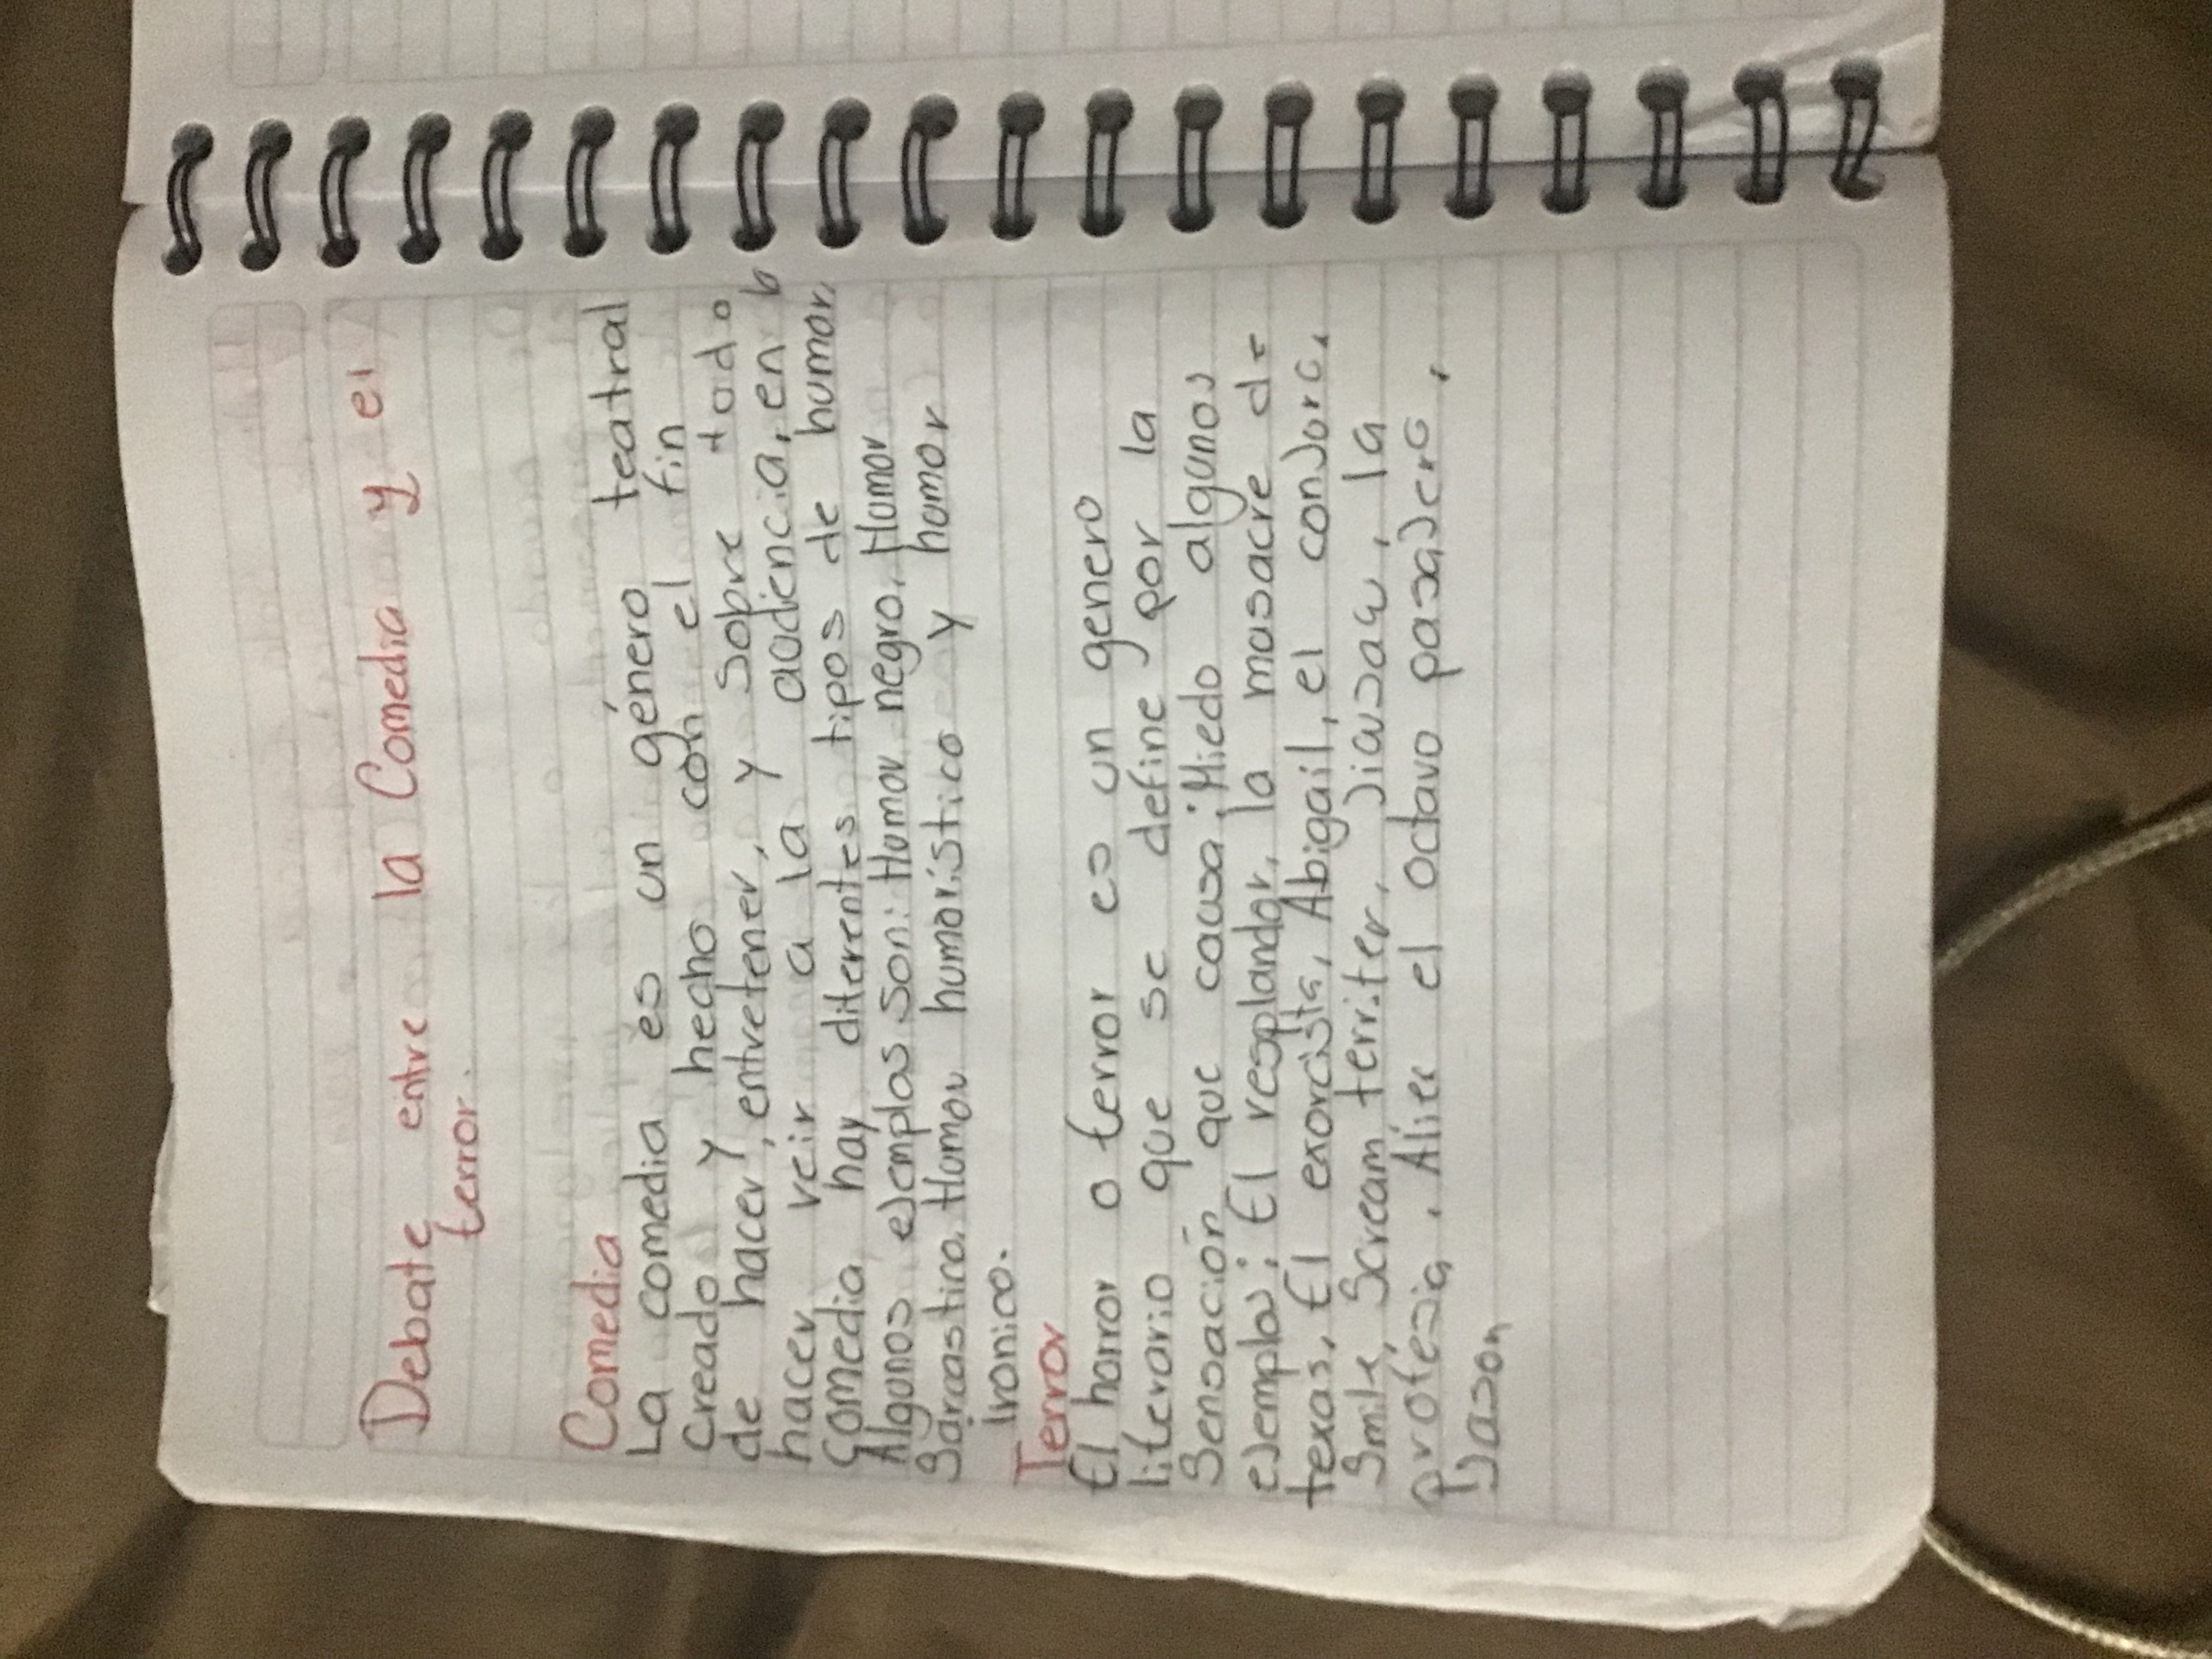 Debate entre la Comedia y el
terror.
Comedia
La comedia es un género teatral
Creado y hecho con el fin
de hacer, entretener, y sobre todo
hacer reir a la audiencia, en
Comedia hay diferentes tipos de humor,
Algunos ejemplos son: Humor negro, Humor
Sarcastico, Humor humorístico y humor
Ironico.
Terror
El horror o terror es un genero
literario que se define por la
Sensación que causa: Miedo algunos
ejemplos: El resplandor, la masacre de
texas, El exorcista, Abigail, el conjoro,
Smile, Scream territer, Jiausaw, la
profesia, Alien el octavo pasajero,
Jason